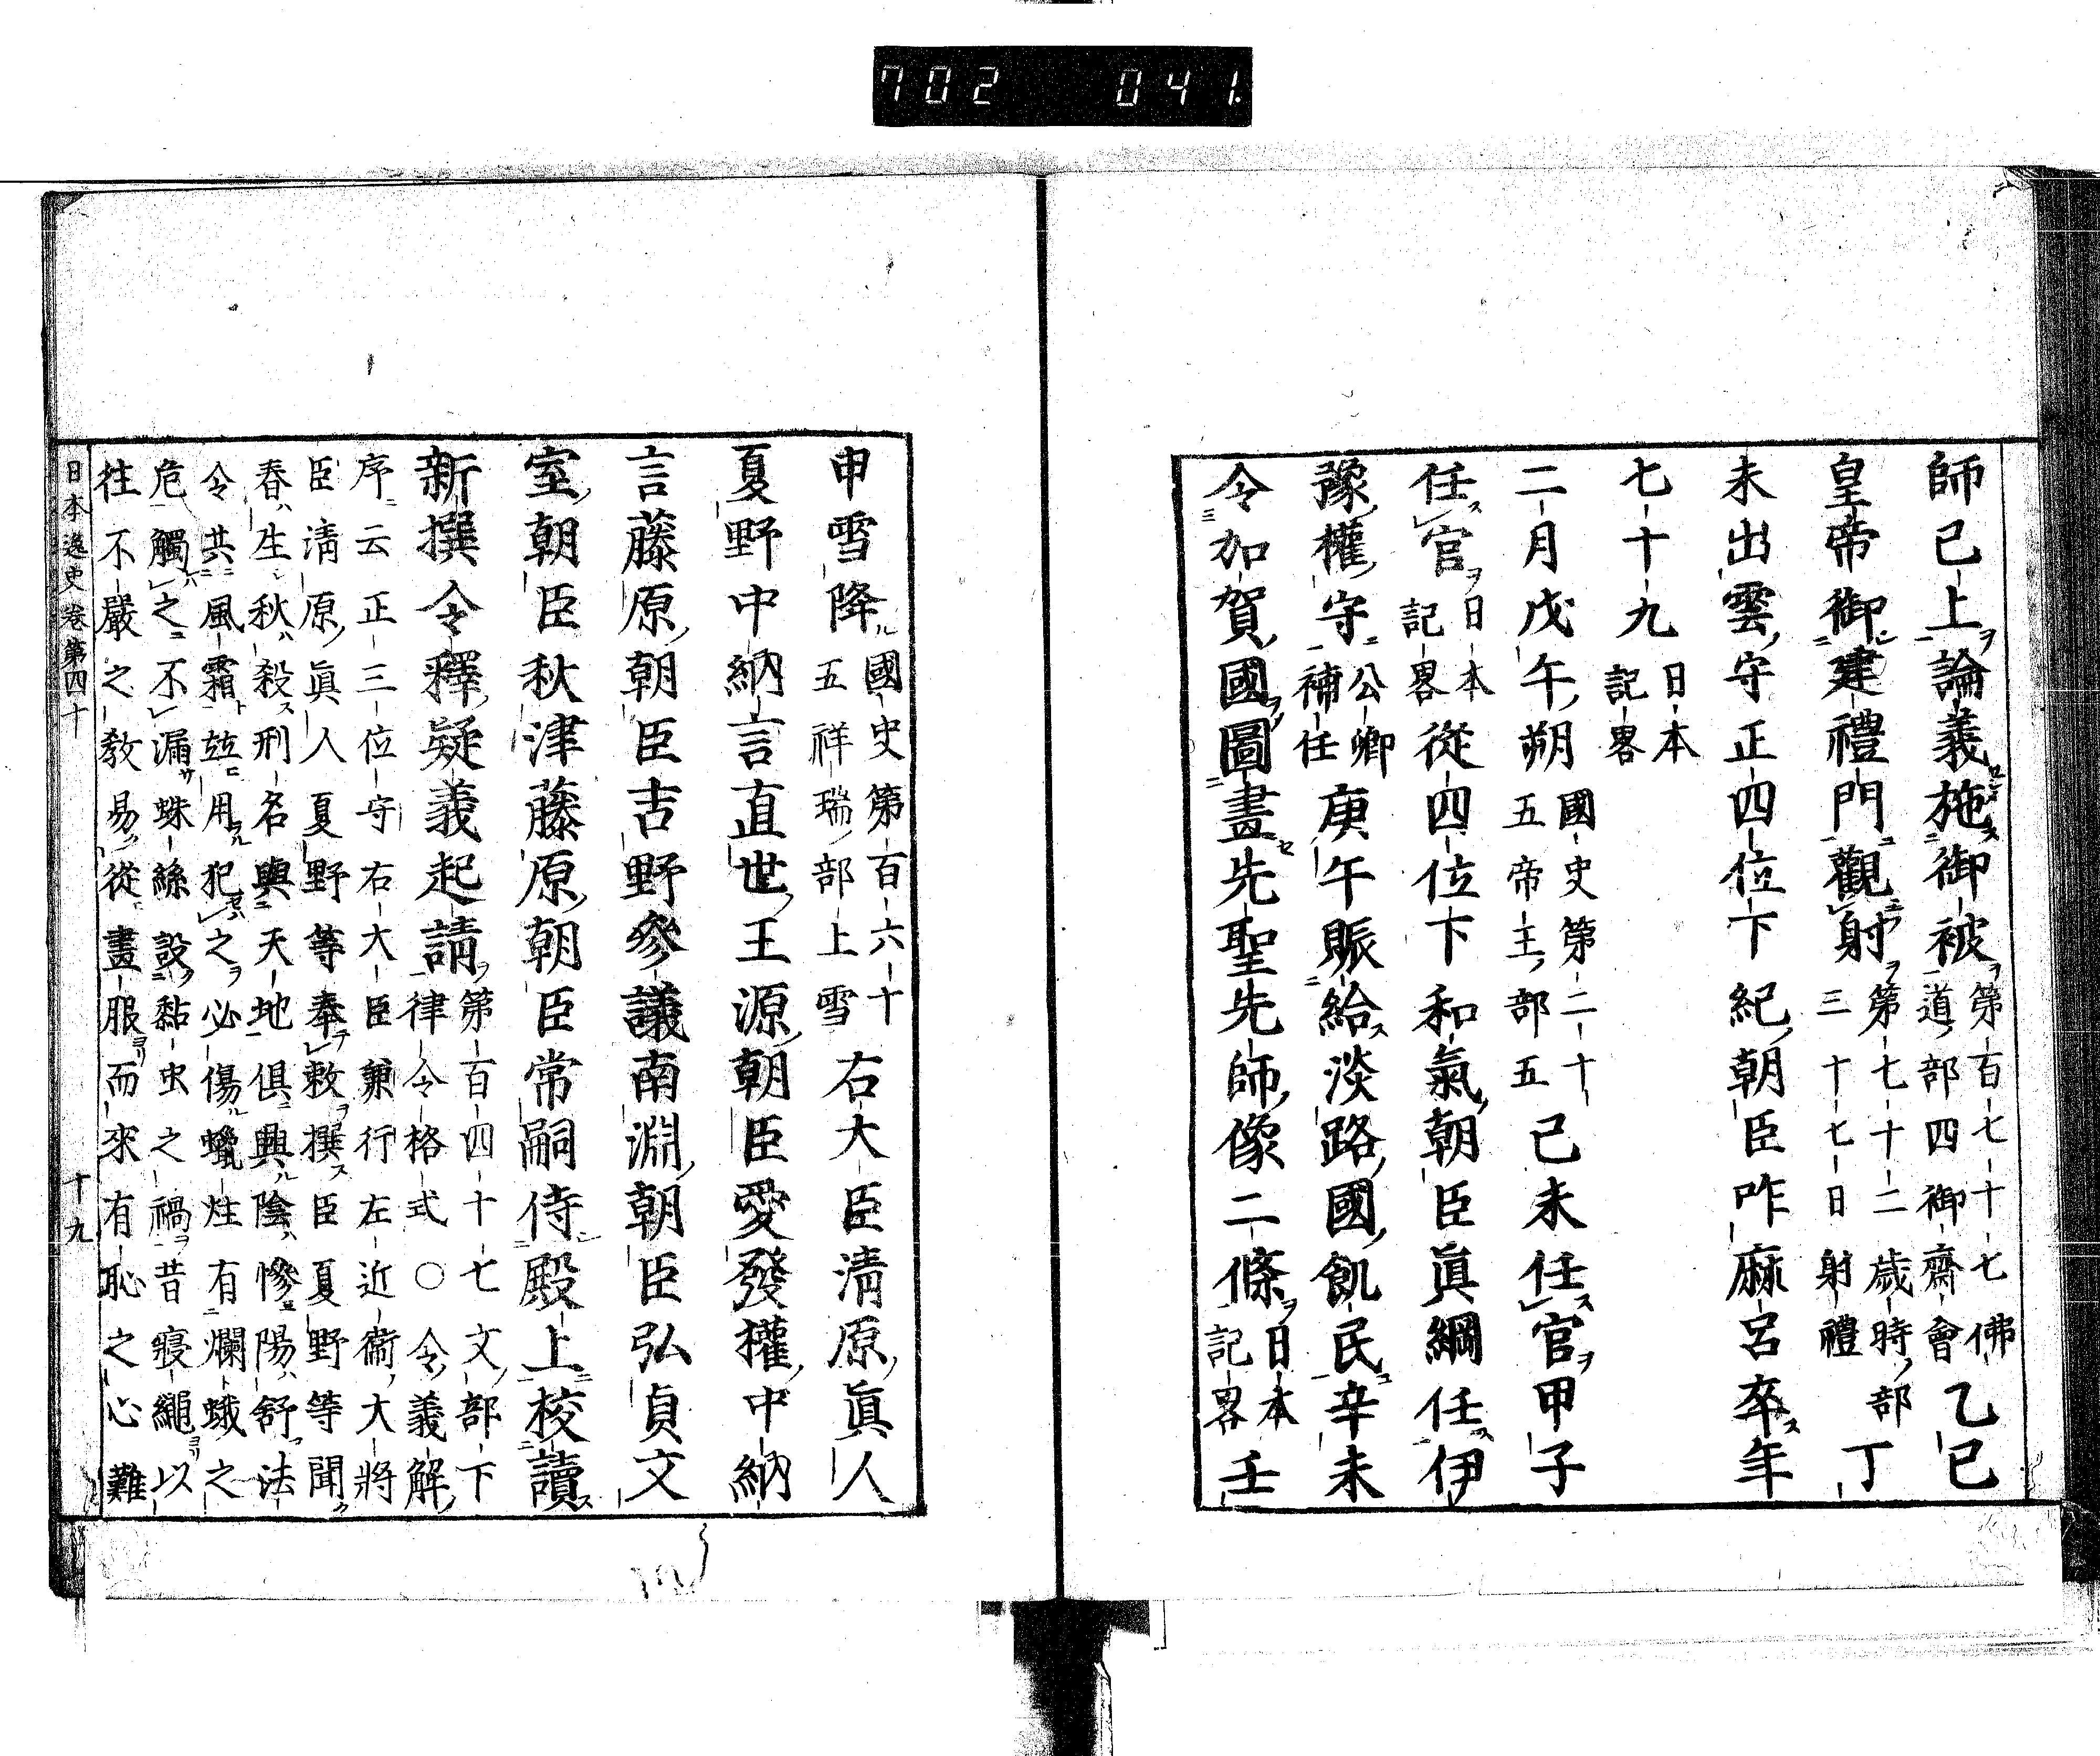 702 041.
師已上論義施御被第百七十七佛道部四御齋會乙巳
皇帝御建禮門觀射第七十二歳時部三十七日射禮丁
未出雲守正四位下紀朝臣咋麻呂卒年
七十九日本記畧
二月戊午朔國史第二十五帝王部五己未任官甲子
任官日本記畧從四位下和氣朝臣眞綱任伊
豫權守公卿補任庚午賑給淡路國飢民辛未
令加賀國圖畫先聖先師像二條日本記畧壬
申雪降國史第百六十五祥瑞部上雪右大臣清原眞人
夏野中納言直世王源朝臣愛發權中納
言藤原朝臣吉野參議南淵朝臣弘貞文
室朝臣秋津藤原朝臣常嗣侍殿上校讀
新撰令釋疑義起請第百四十七文部下律令格式○令義解
序云正三位守右大臣兼行左近衞大將
臣清原眞人夏野等奉敕撰臣夏野等聞
春生秋殺刑名與天地俱興陰慘陽舒法
令共風霜並用犯之必傷蠟炷有爛蛾之
危觸之不漏蛛絲設黏虫之禍昔寢繩以
往不嚴之敎易從畫服而來有恥之心難
日本逸史卷第四十 十九